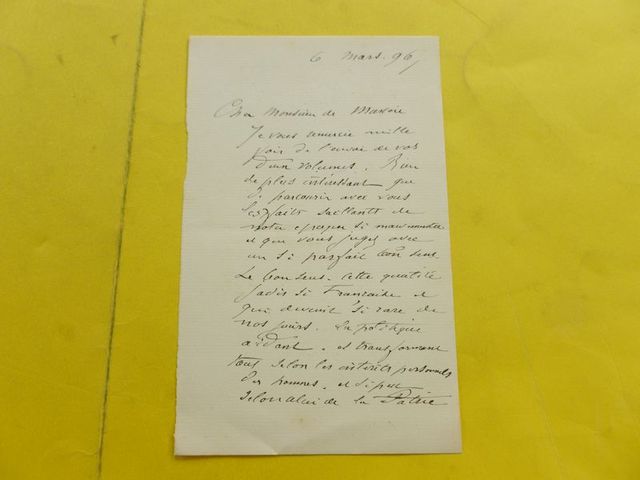 6 Mars. 96
Cher Monsieur de
Je vous remercie mille
fois de l'envoi de vos
deux volumes. Rien
de plus intéressant que
de parcourir avec vous
les faits saillants de
notre époque si mouvementée
et que vous jugez avec
un si parfait bon sens
Le bon sens. Cette qualité
jadis si Française et
qui devient si rare de
nos jours. La politique
aidant. et transformant
tout selon les intérêts personnels
des hommes. et si peu
selon celui de la Patrie